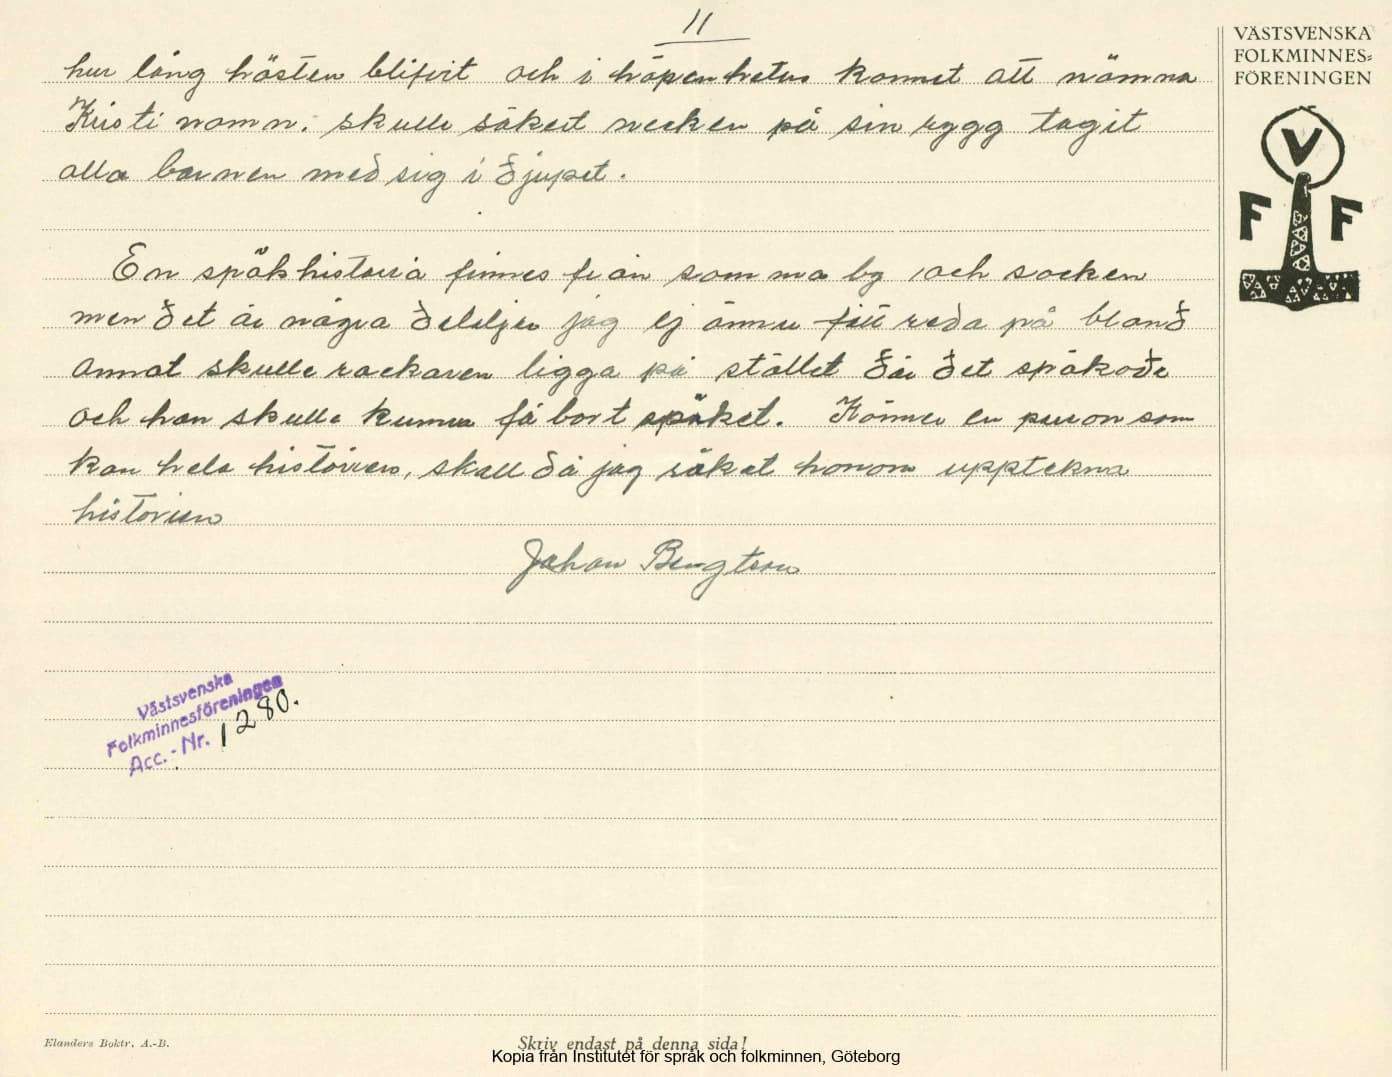 11
hur lång hästen blifvit och i häpenheten kommet att nämna
Kristi namn. skulle säkert necken på sin rygg tagit
alla barnen med sig i djupet.
En spökhistoria finnes från samma by och socken
men det är några deteljer jag ej ännu fått reda på bland
annat skulle rackaren ligga på stället där det spökade
och han skulle kunna få bort spöket. Känner en person som
kan hela historien, skall då jag råkat honom uppteckna
historien
Johan Bengtson
Västsvenska
Folkminnesföreningen
Acc.-Nr. 1280.
VÄSTSVENSKA
FOLKMINNES=
FÖRENINGEN
V
F F
Elanders Boktr. A.-B.
Skriv endast på denna sida!
Kopia från Institutet för språk och folkminnen, Göteborg